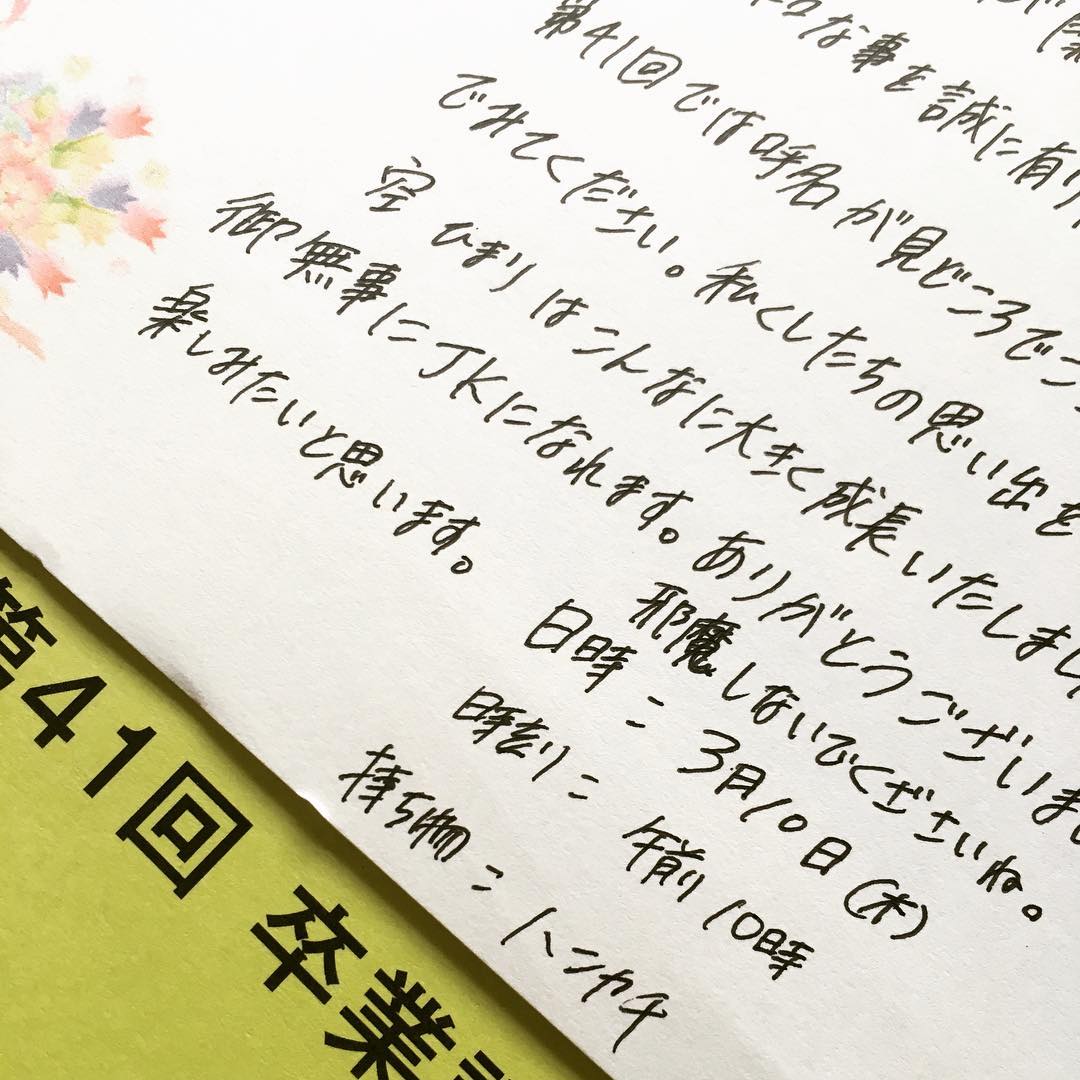 な事を誠に有り
第41回では呼名が見どころでご
でみてください。私くしたちの思い出を
空ひまりはこんなに大きく成長いたしまし
御無事にJKになれます。ありがとうございま
楽しみたいと思います。邪魔しないでくださいね。
日時＝3月10日(木)
時刻＝午前10時
持ち物＝ハンカチ
第41回 卒業